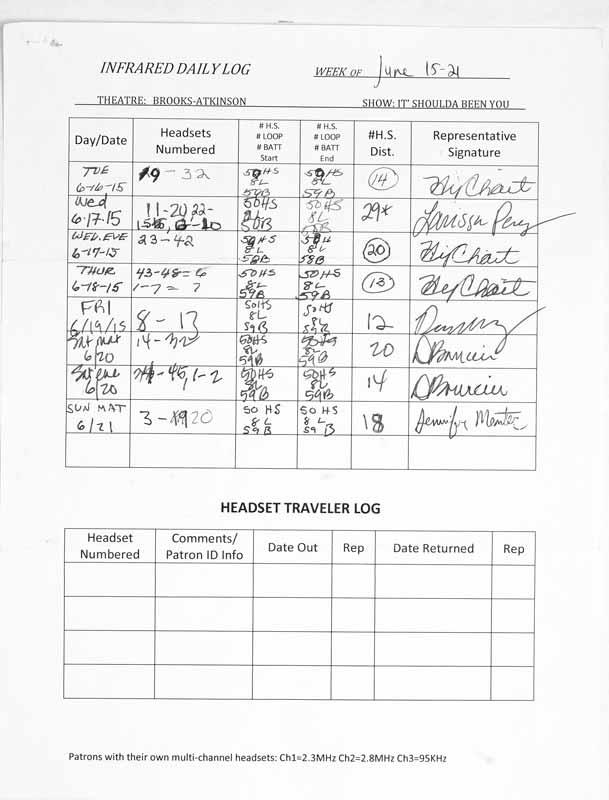 INFRARED DAILY LOG WEEK OF June 15-21
THEATRE: BROOKS-ATKINSON SHOW: IT' SHOULDA BEEN YOU
Day/Date Headsets Numbered # H.S. # LOOP # BATT Start # H.S. # LOOP # BATT End #H.S. Dist. Representative Signature
TUE 6-16-15 19-32 50HS 8L 59B 50HS 8L 59B 14
Wed 6.17.15 11-20, 22- 50HS 50B 50HS 8L 58B 29* Larissa Perez
WED.EVE 6-17-15 23-42 50HS 8L 58B 50H 8L 58B 20
THUR 6-18-15 43-48=6 1-7=7 50HS 8L 59B 50HS 8L 59B 13
FRI 6/19/15 8-13 50HS 8L 59B 50HS 8L 59B 12
Sat mat 6/20 14-32 50HS 8L 59B 50HS 8L 59B 20
Sat eve 6/20 -45, 1-2 50HS 8L 59B 50HS 8L 59B 14
SUN MAT 6/21 3-20 50 HS 8 L 59 B 50 HS 8 L 59 B 18 Jennifer
HEADSET TRAVELER LOG
Headset Numbered Comments/ Patron ID Info Date Out Rep Date Returned Rep
Patrons with their own multi-channel headsets: Ch1=2.3MHz Ch2=2.8MHz Ch3=95KHz